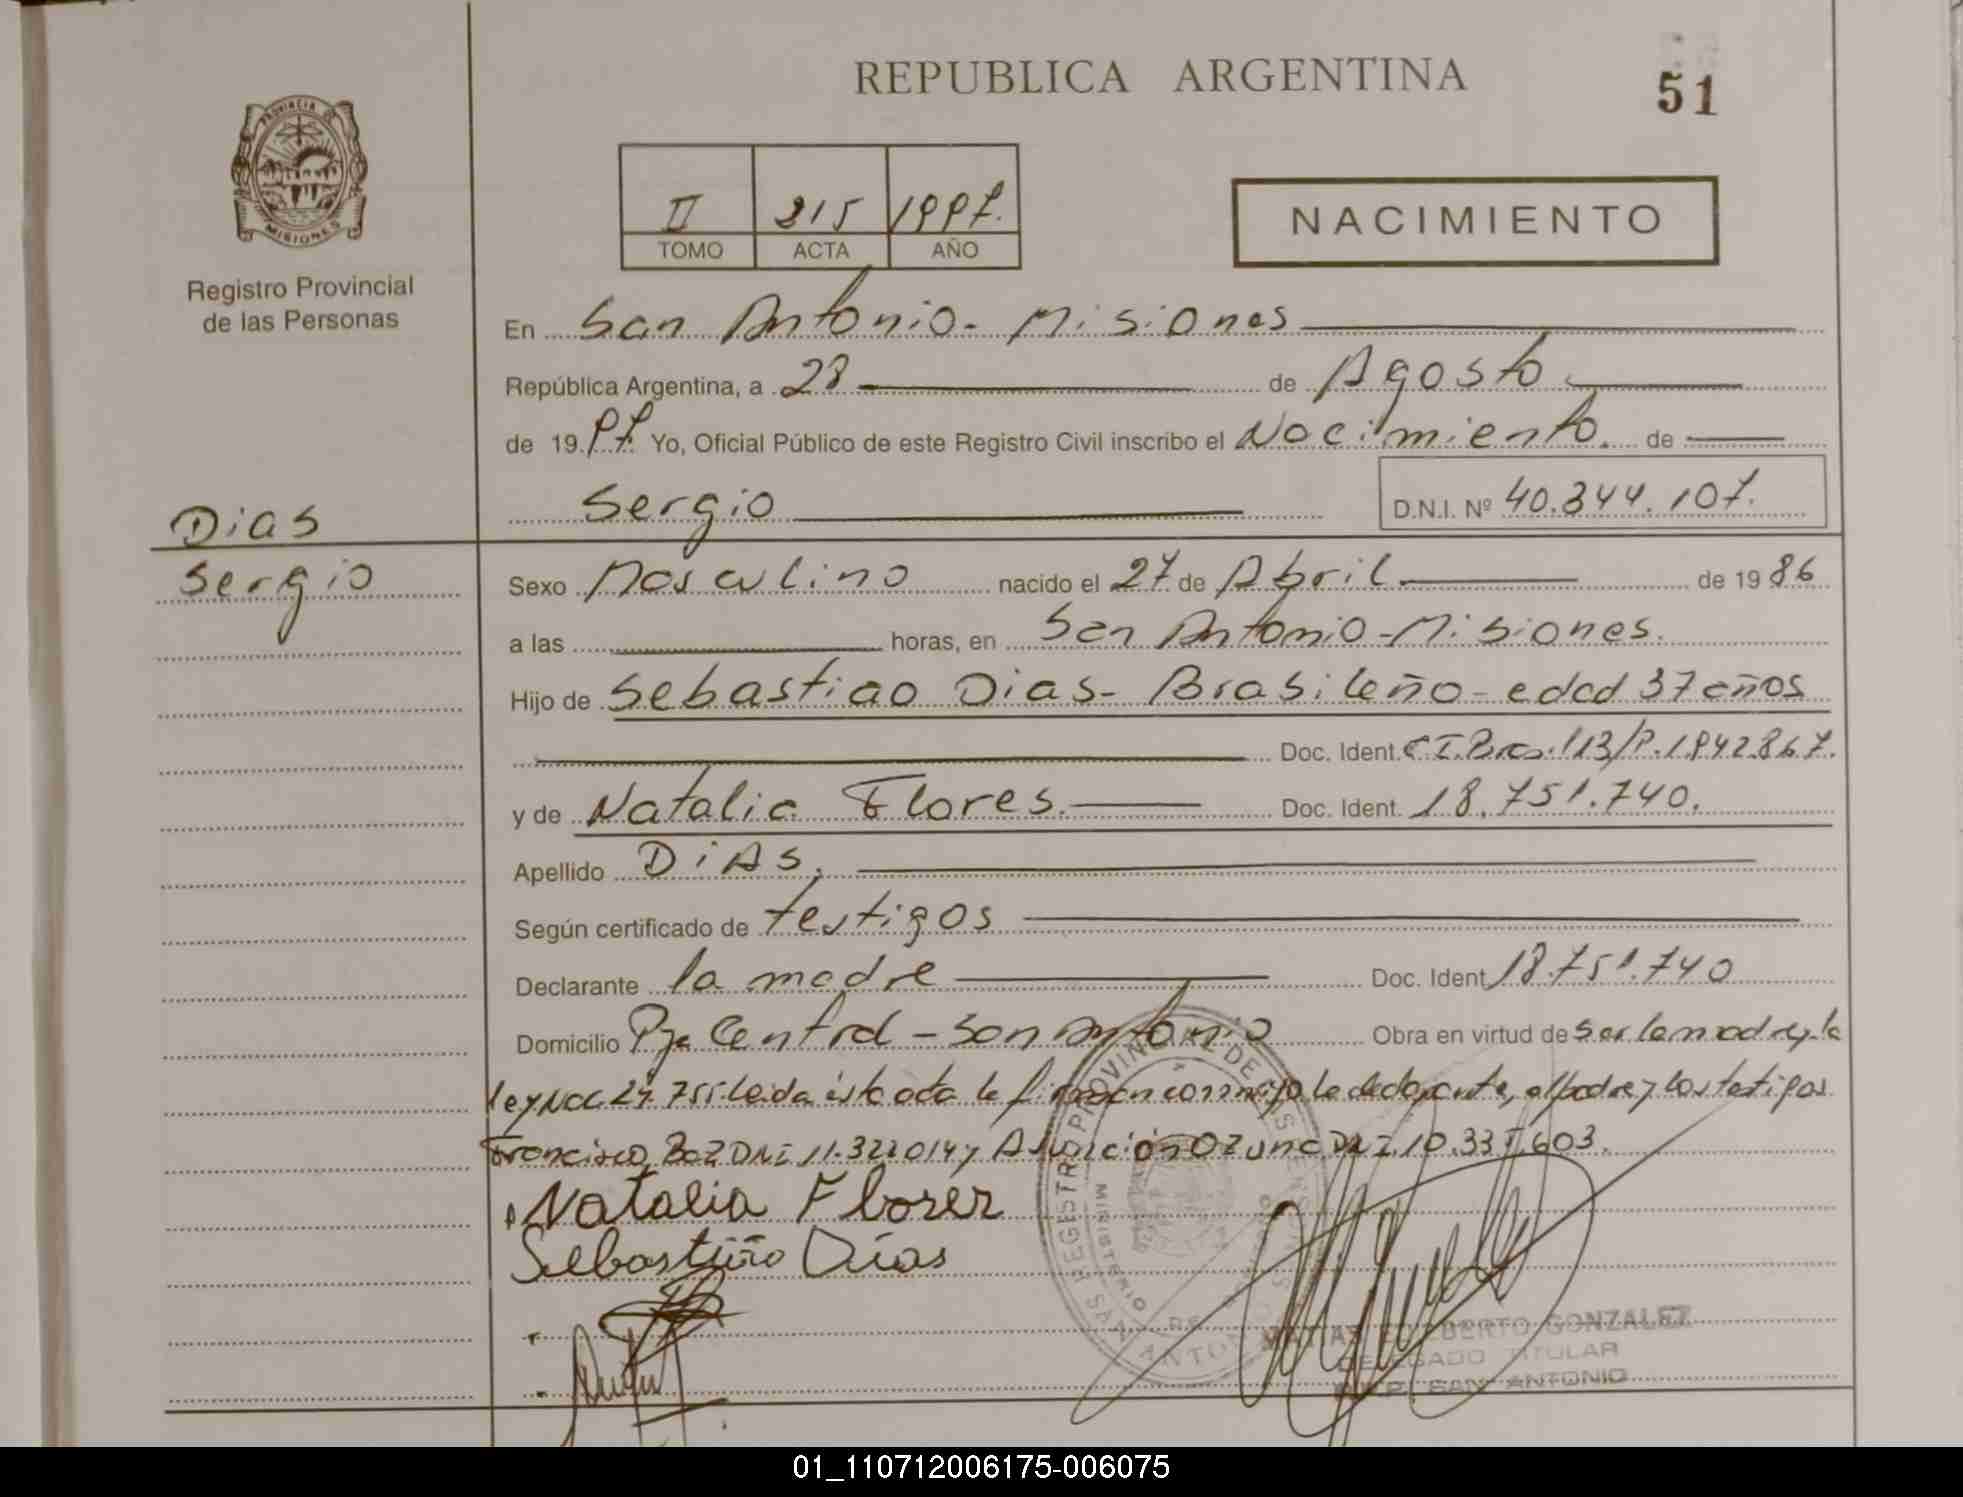 REPUBLICA ARGENTINA
51
PROVINCIA DE
MISIONES
Registro Provincial
de las Personas
II 815 1997.
TOMO ACTA AÑO
NACIMIENTO
En San Antonio - Misiones
República Argentina, a 28 de Agosto
de 19 97. Yo, Oficial Público de este Registro Civil inscribo el Nacimiento. de
Sergio D.N.I. Nº 40.344.107.
Dias
Sergio
Sexo Masculino nacido el 27 de Abril de 19 86
a las horas, en San Antonio - Misiones.
Hijo de Sebastiao Dias - Brasileño - edad 37 años
Doc. Ident. C.I. Bras. 113/P.1.942.867.
y de Natalia Flores. Doc. Ident. 18.751.740.
Apellido DiAS.
Según certificado de testigos
Declarante la madre Doc. Ident 18.751.740
Domicilio Pje Central - San Antonio Obra en virtud de ser la madre y la
ley Nac 24.755. Leida ésta acta la firman conmigo la declarante, el padre y los testigos
Francisco Boz DNI 11.322014 y Asunción Ozuna DNI.10.335.603.
Natalia Flores
Sebastião Dias
REGISTRO PROVINCIAL DE LAS PERSONAS
MINISTERIO DE
SAN ANTONIO
MATIAS EDILBERTO GONZALEZ
DELEGADO TITULAR
R.P.P. SAN ANTONIO
01_110712006175-006075